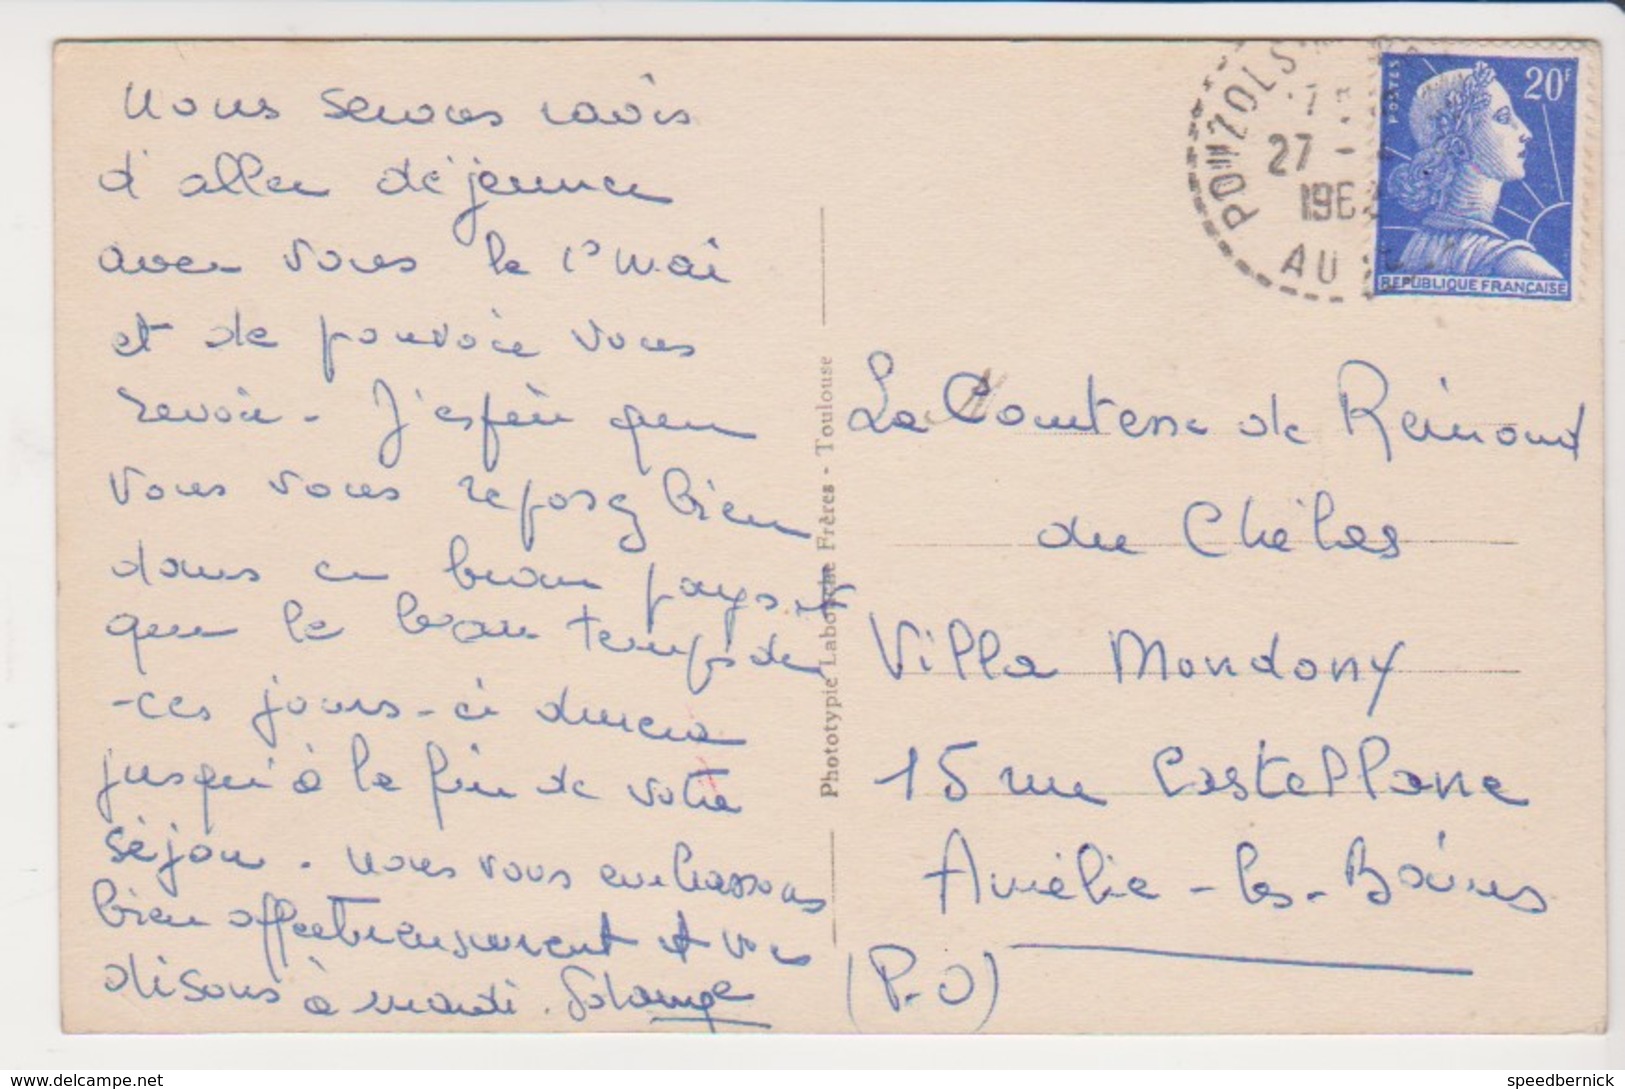 Nous serons ravis
d'aller déjeuner
avec vous le 1er mai
et de pouvoir vous
revoir. J'espère que
vous vous reposez bien
dans ce beau pays et
que le beau temps de
ces jours-ci durera
jusqu'à la fin de votre
séjour. Nous vous embrassons
bien affectueusement et vous
disons à mardi. Solange
Phototypie Labouche Frères - Toulouse
POUZOLS
27 -
196
AU
POSTES
20F
REPUBLIQUE FRANÇAISE
La Comtesse de Reimond
du Chélas
Villa Mondony
15 rue Castellane
Amélie-les-Bains
(P-O)
speedbernick
www.delcampe.net